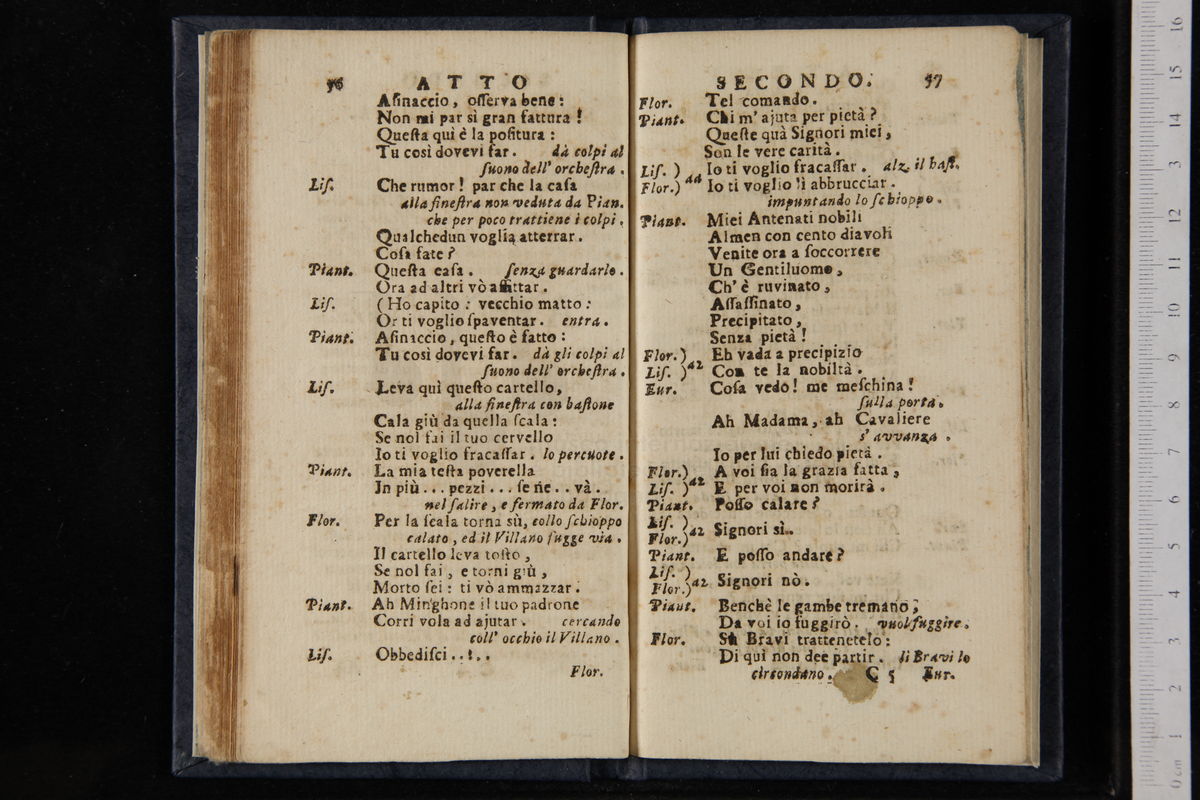 56 ATTO
Aſinaccio, oſſerva bene:
Non mi par sì gran fattura!
Queſta quì è la poſitura:
Tu così dovevi far. dà colpi al
ſuono dell' orcheſtra.
Liſ. Che rumor! par che la caſa
alla fineſtra non veduta da Pian.
che per poco trattiene i colpi.
Qualchedun voglia atterrar.
Coſa fate?
Piant. Queſta caſa. ſenza guardarlo.
Ora ad altri vò affittar.
Liſ. (Ho capito: vecchio matto:
Or ti voglio ſpaventar. entra.
Piant. Aſinaccio, queſto è fatto:
Tu così dovevi far. dà gli colpi al
ſuono dell' orcheſtra.
Liſ. Leva quì queſto cartello,
alla fineſtra con baſtone
Cala giù da quella ſcala:
Se nol fai il tuo cervello
Io ti voglio fracaſſar. lo percuote.
Piant. La mia teſta poverella
In più... pezzi... ſe ne.. và.
nel ſalire, e fermato da Flor.
Flor. Per la ſcala torna sù, collo ſchioppo
calato, ed il Villano fugge via.
Il cartello leva toſto,
Se nol fai, e torni giù,
Morto ſei: ti vò ammazzar.
Piant. Ah Minghone il tuo padrone
Corri vola ad ajutar. cercando
coll' occhio il Villano.
Liſ. Obbediſci....
Flor.
SECONDO. 57
Flor. Tel comando.
Piant. Chi m' ajuta per pietà?
Queſte quà Signori miei,
Son le vere carità.
Liſ. ) Io ti voglio fracaſſar. alz. il baſt.
Flor.) a2 Io ti voglio lì abbrucciar.
impuntando lo ſchioppo.
Piant. Miei Antenati nobili
Almen con cento diavoli
Venite ora a ſoccorrere
Un Gentiluomo,
Ch' è ruvinato,
Aſſaſſinato,
Precipitato,
Senza pietà!
Flor.) Eh vada a precipizio
Liſ. ) a2 Con te la nobiltà.
Eur. Coſa vedo! me meſchina!
ſulla porta.
Ah Madama, ah Cavaliere
s' avvanza.
Io per lui chiedo pietà.
Flor.) A voi ſia la grazia fatta,
Liſ. ) a2 E per voi non morirà.
Piant. Poſſo calare?
Liſ. )
Flor.) a2 Signori sì.
Piant. E poſſo andare?
Liſ. )
Flor.) a2 Signori nò.
Piant. Benchè le gambe tremano,
Da voi io fuggirò. vuol fuggire.
Flor. Sù Bravi trattenetelo:
Di quì non dee partir. li Bravi lo
circondano. C 5 Eur.
0 cm 1 2 3 4 5 6 7 8 9 10 11 12 13 14 15 16